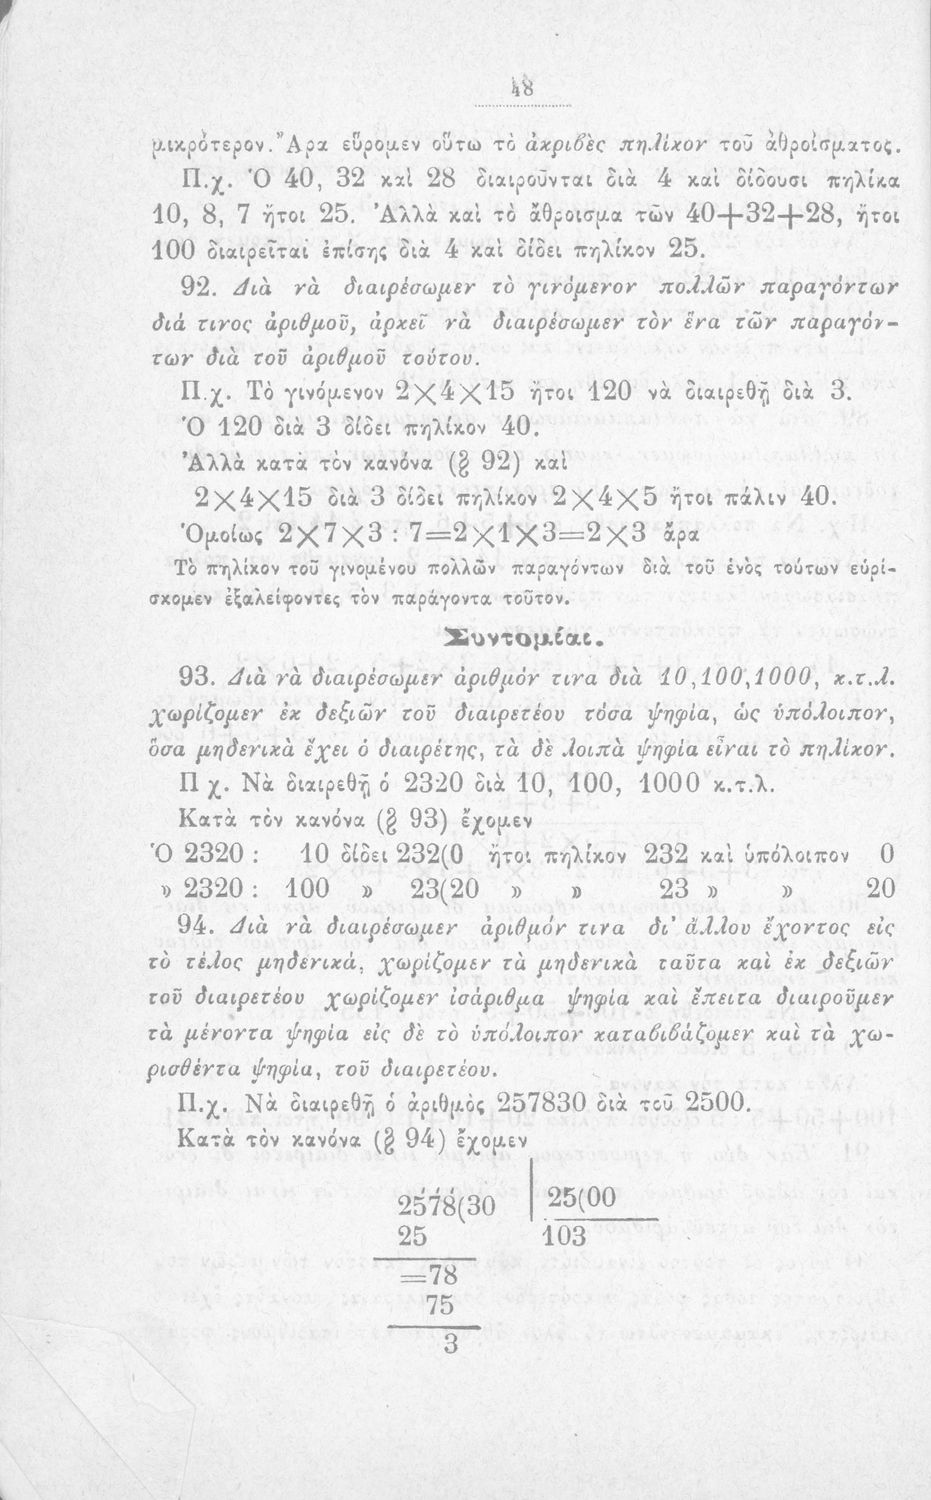 48
μικρότερον. Ἄρα εὕρομεν οὕτω τὸ ἀκριβὲς πηλίκον τοῦ ἀθροίσματος.
Π.χ. Ὁ 40, 32 καὶ 28 διαιροῦνται διὰ 4 καὶ δίδουσι πηλίκα
10, 8, 7 ἤτοι 25. Ἀλλὰ καὶ τὸ ἄθροισμα τῶν 40+32+28, ἤτοι
100 διαιρεῖται ἐπίσης διὰ 4 καὶ δίδει πηλίκον 25.
92. Διὰ νὰ διαιρέσωμεν τὸ γινόμενον πολλῶν παραγόντων
διά τινος ἀριθμοῦ, ἀρκεῖ νὰ διαιρέσωμεν τὸν ἕνα τῶν παραγόν-
των διὰ τοῦ ἀριθμοῦ τούτου.
Π.χ. Τὸ γινόμενον 2×4×15 ἤτοι 120 νὰ διαιρεθῇ διὰ 3.
Ὁ 120 διὰ 3 δίδει πηλίκον 40.
Ἀλλὰ κατὰ τὸν κανόνα (§ 92) καὶ
2×4×15 διὰ 3 δίδει πηλίκον 2×4×5 ἤτοι πάλιν 40.
Ὁμοίως 2×7×3 : 7=2×1×3=2×3 ἄρα
Τὸ πηλίκον τοῦ γινομένου πολλῶν παραγόντων διὰ τοῦ ἑνὸς τούτων εὑρί-
σκομεν ἐξαλείφοντες τὸν παράγοντα τοῦτον.
Συντομίαι.
93. Διὰ νὰ διαιρέσωμεν ἀριθμόν τινα διὰ 10,100,1000, κ.τ.λ.
χωρίζομεν ἐκ δεξιῶν τοῦ διαιρετέου τόσα ψηφία, ὡς ὑπόλοιπον,
ὅσα μηδενικὰ ἔχει ὁ διαιρέτης, τὰ δὲ λοιπὰ ψηφία εἶναι τὸ πηλίκον.
Π χ. Νὰ διαιρεθῇ ὁ 2320 διὰ 10, 100, 1000 κ.τ.λ.
Κατὰ τὸν κανόνα (§ 93) ἔχομεν
Ὁ 2320 : 10 δίδει 232(0 ἤτοι πηλίκον 232 καὶ ὑπόλοιπον 0
» 2320 : 100 » 23(20 » » 23 » » 20
94. Διὰ νὰ διαιρέσωμεν ἀριθμόν τινα δι' ἄλλου ἔχοντος εἰς
τὸ τέλος μηδενικά, χωρίζομεν τὰ μηδενικὰ ταῦτα καὶ ἐκ δεξιῶν
τοῦ διαιρετέου χωρίζομεν ἰσάριθμα ψηφία καὶ ἔπειτα διαιροῦμεν
τὰ μένοντα ψηφία εἰς δὲ τὸ ὑπόλοιπον καταβιβάζομεν καὶ τὰ χω-
ρισθέντα ψηφία, τοῦ διαιρετέου.
Π.χ. Νὰ διαιρεθῇ ὁ ἀριθμὸς 257830 διὰ τοῦ 2500.
Κατὰ τὸν κανόνα (§ 94) ἔχομεν
2578(30 25(00
25 103
=78
75
3